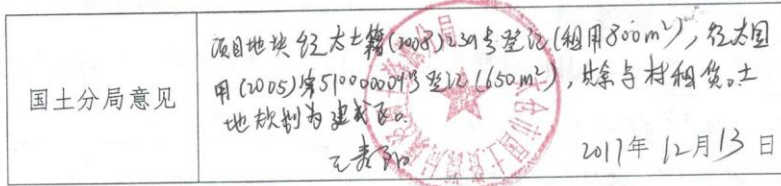 国土分局意见
项目地块经太土籍(2008)239号登记(租用800m²),经太国
用(2005)第510000009号登记(650m²),其余与村租赁。土
地规划为建设区。
2017年12月13日